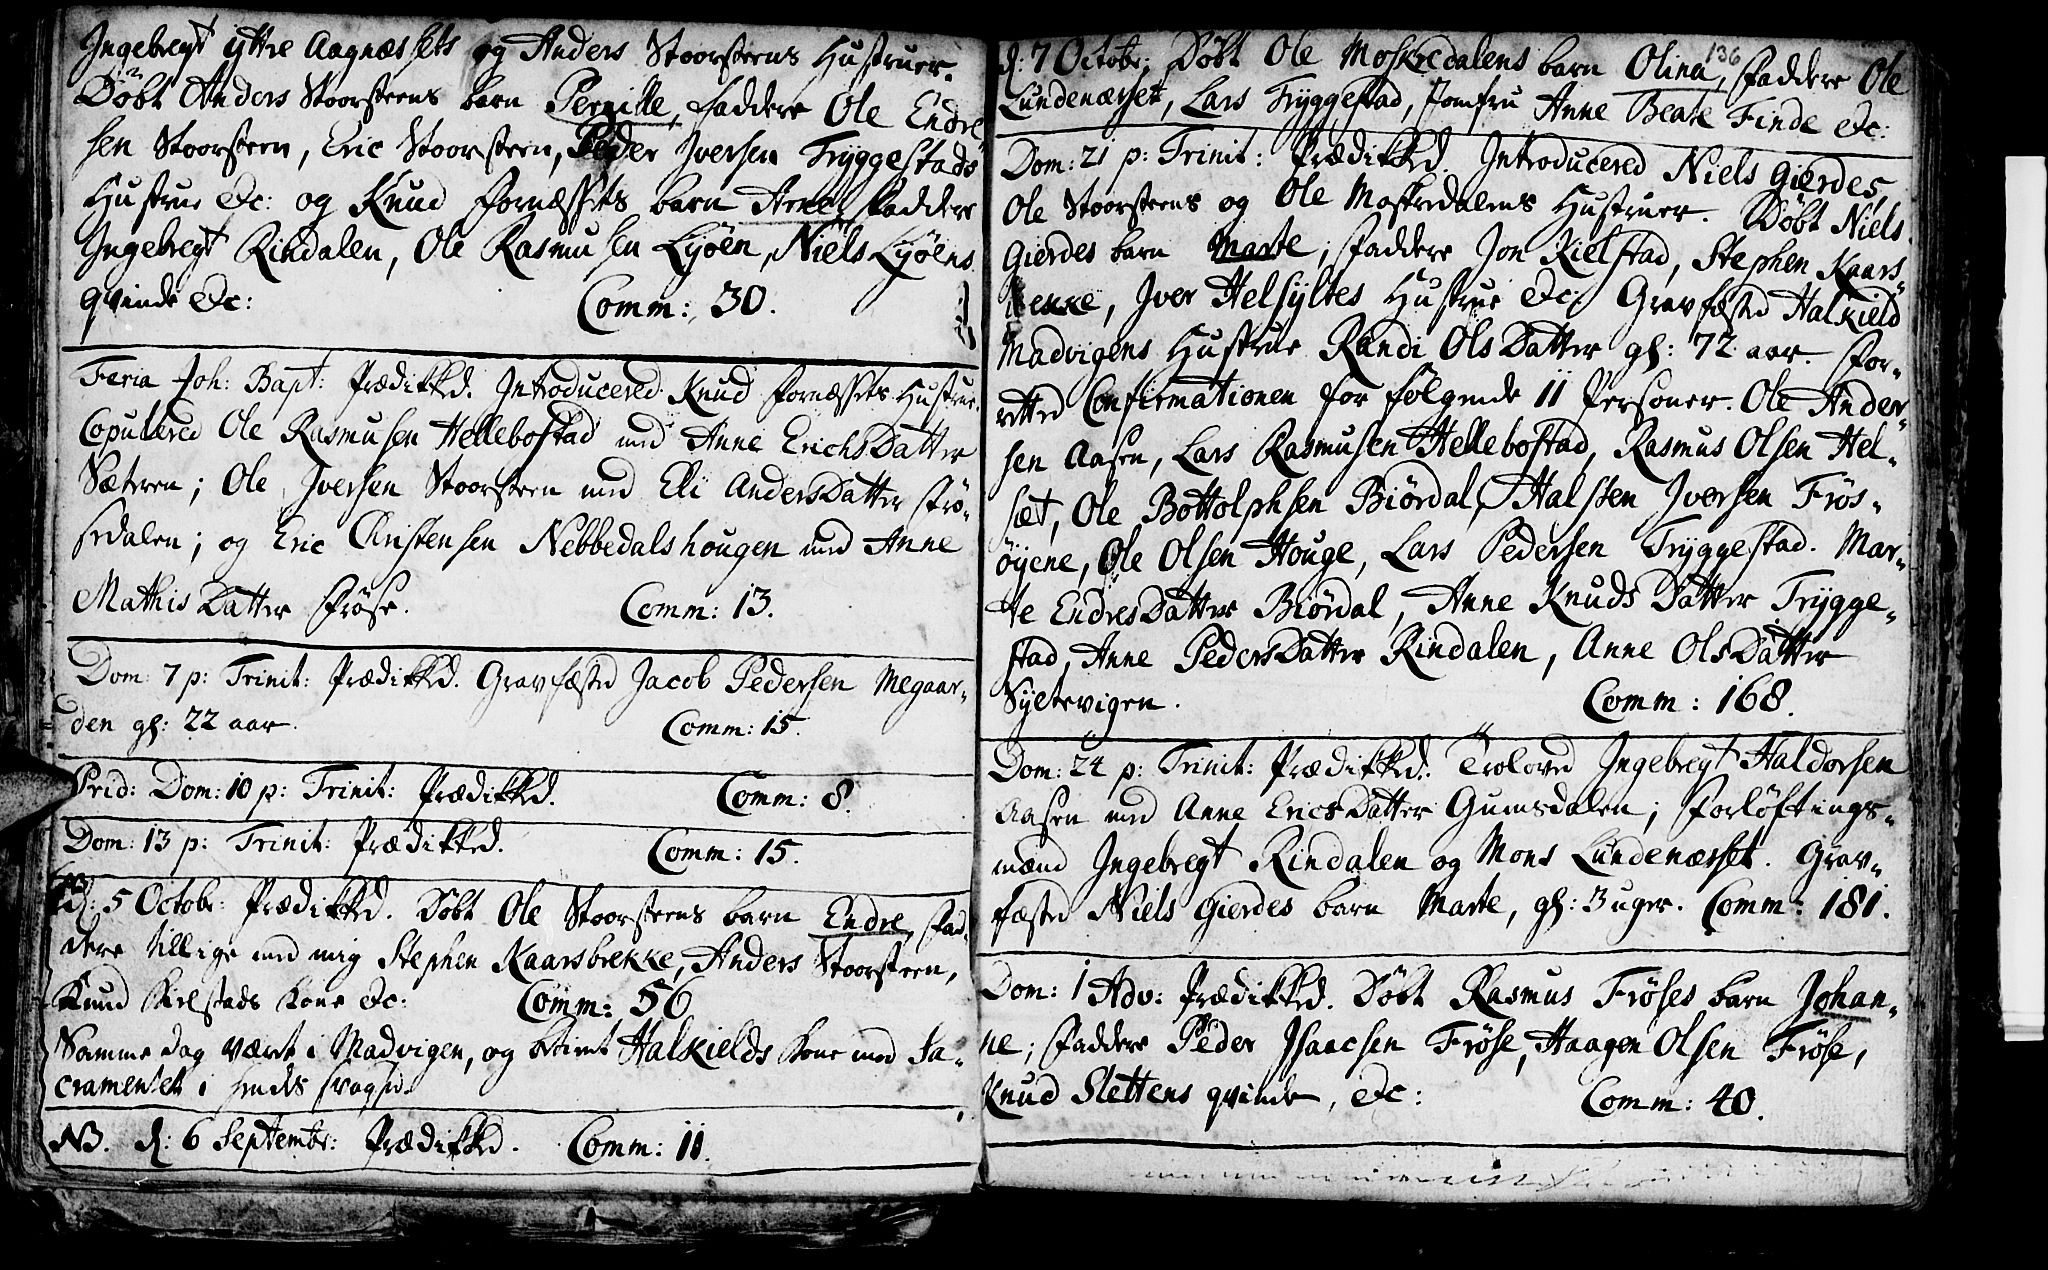 Ingebregt yttre Aagnæssets og Anders Stoorsteens Hustruer.
Döbt Anders Stoorsteens barn Pernille, faddere Ole Endre-
sen Stoorsteen, Eric Stoorsteen, Peder Iversen Tryggestads
Hustrue etc: og Knud fornæssets barn Arne, faddere
Ingebregt Rindalen, Ole Rasmusen Lyöen, Niels Lyöens
qvinde etc: Comm: 30.
Feria Joh: Bapt: Prædikked. Introducered Knud fornæssets Hustrue.
Copulered Ole Rasmusen Hellebostad med Anne ErichsDatter
Sætren; Ole Iversen Stoorsteen med Eli AndersDatter frö-
sdalen; og Eric Christensen Nebbedalshougen med Anne
MathisDatter fröse. Comm: 13.
Dom: 7 p: Trinit: Prædikked. Gravfæsted Jacob Pedersen Megaar-
den gl: 22 aar. Comm: 15.
Prid: Dom: 10 p: Trinit: Prædikked. Comm: 8.
Dom: 13 p: Trinit: Prædikked. Comm: 15.
d: 5 Octobr: Prædikked. Döbt Ole Stoorsteens barn Endre, fad-
dere tillige med mig Stephen Kaarsbrekke, Anders Stoorsteen,
Knud Kielstads kone etc: Comm: 56
Samme dag været i Madvigen, og betient Halkields kone med Sa-
cramentet i hendes svaghed.
NB. d: 6 Septembr: Prædikked. Comm: 11.
136
d: 7 Octobr: Döbt Ole Moskedalens barn Olina, faddere Ole
Lundenæsset, Lars Tryggestad, Jomfru Anne Beate Finde etc:
Dom: 21 p: Trinit: Prædikked. Introducered Niels Gierdes,
Ole Stoorsteens og Ole Moskedalens Hustruer. Döbt Niels
Gierdes barn Marte; faddere Jon Kielstad, Stephen Kaars-
brekke, Iver Helsyltes Hustrue etc: Gravfæsted Halkield
Madvigens Hustrue Randi OlsDatter gl: 72 aar. for-
retted Confirmationen for fölgende 11 Personer. Ole Ander-
sen Aasen, Lars Rasmusen Hellebostad, Rasmus Olsen Hel-
sæt, Ole Bottolphsen Biördal, Halsten Iversen Frös-
öyene, Ole Olsen Houge, Lars Pedersen Tryggestad. Mar-
te EndresDatter Biördal, Anne KnudsDatter Trygge-
stad, Anne PedersDatter Rindalen, Anne OlsDatter
Syltevigen. Comm: 168.
Dom: 24 p: Trinit: Prædikked. Trolovd Ingebregt Haldorsen
Aasen med Anne EricsDatter Gumsdalen; forlöftings-
mænd Ingebregt Rindalen og Mons Lundenæsset. Grav-
fæsted Niels Gierdes barn Marte, gl: 3 uger. Comm: 181.
Dom: 1 Adv: Prædikked. Döbt Rasmus Fröses barn Johan-
ne; faddere Peder Isaacsen Fröse, Haagen Olsen Fröse,
Knud Slettens qvinde, etc: Comm: 40.